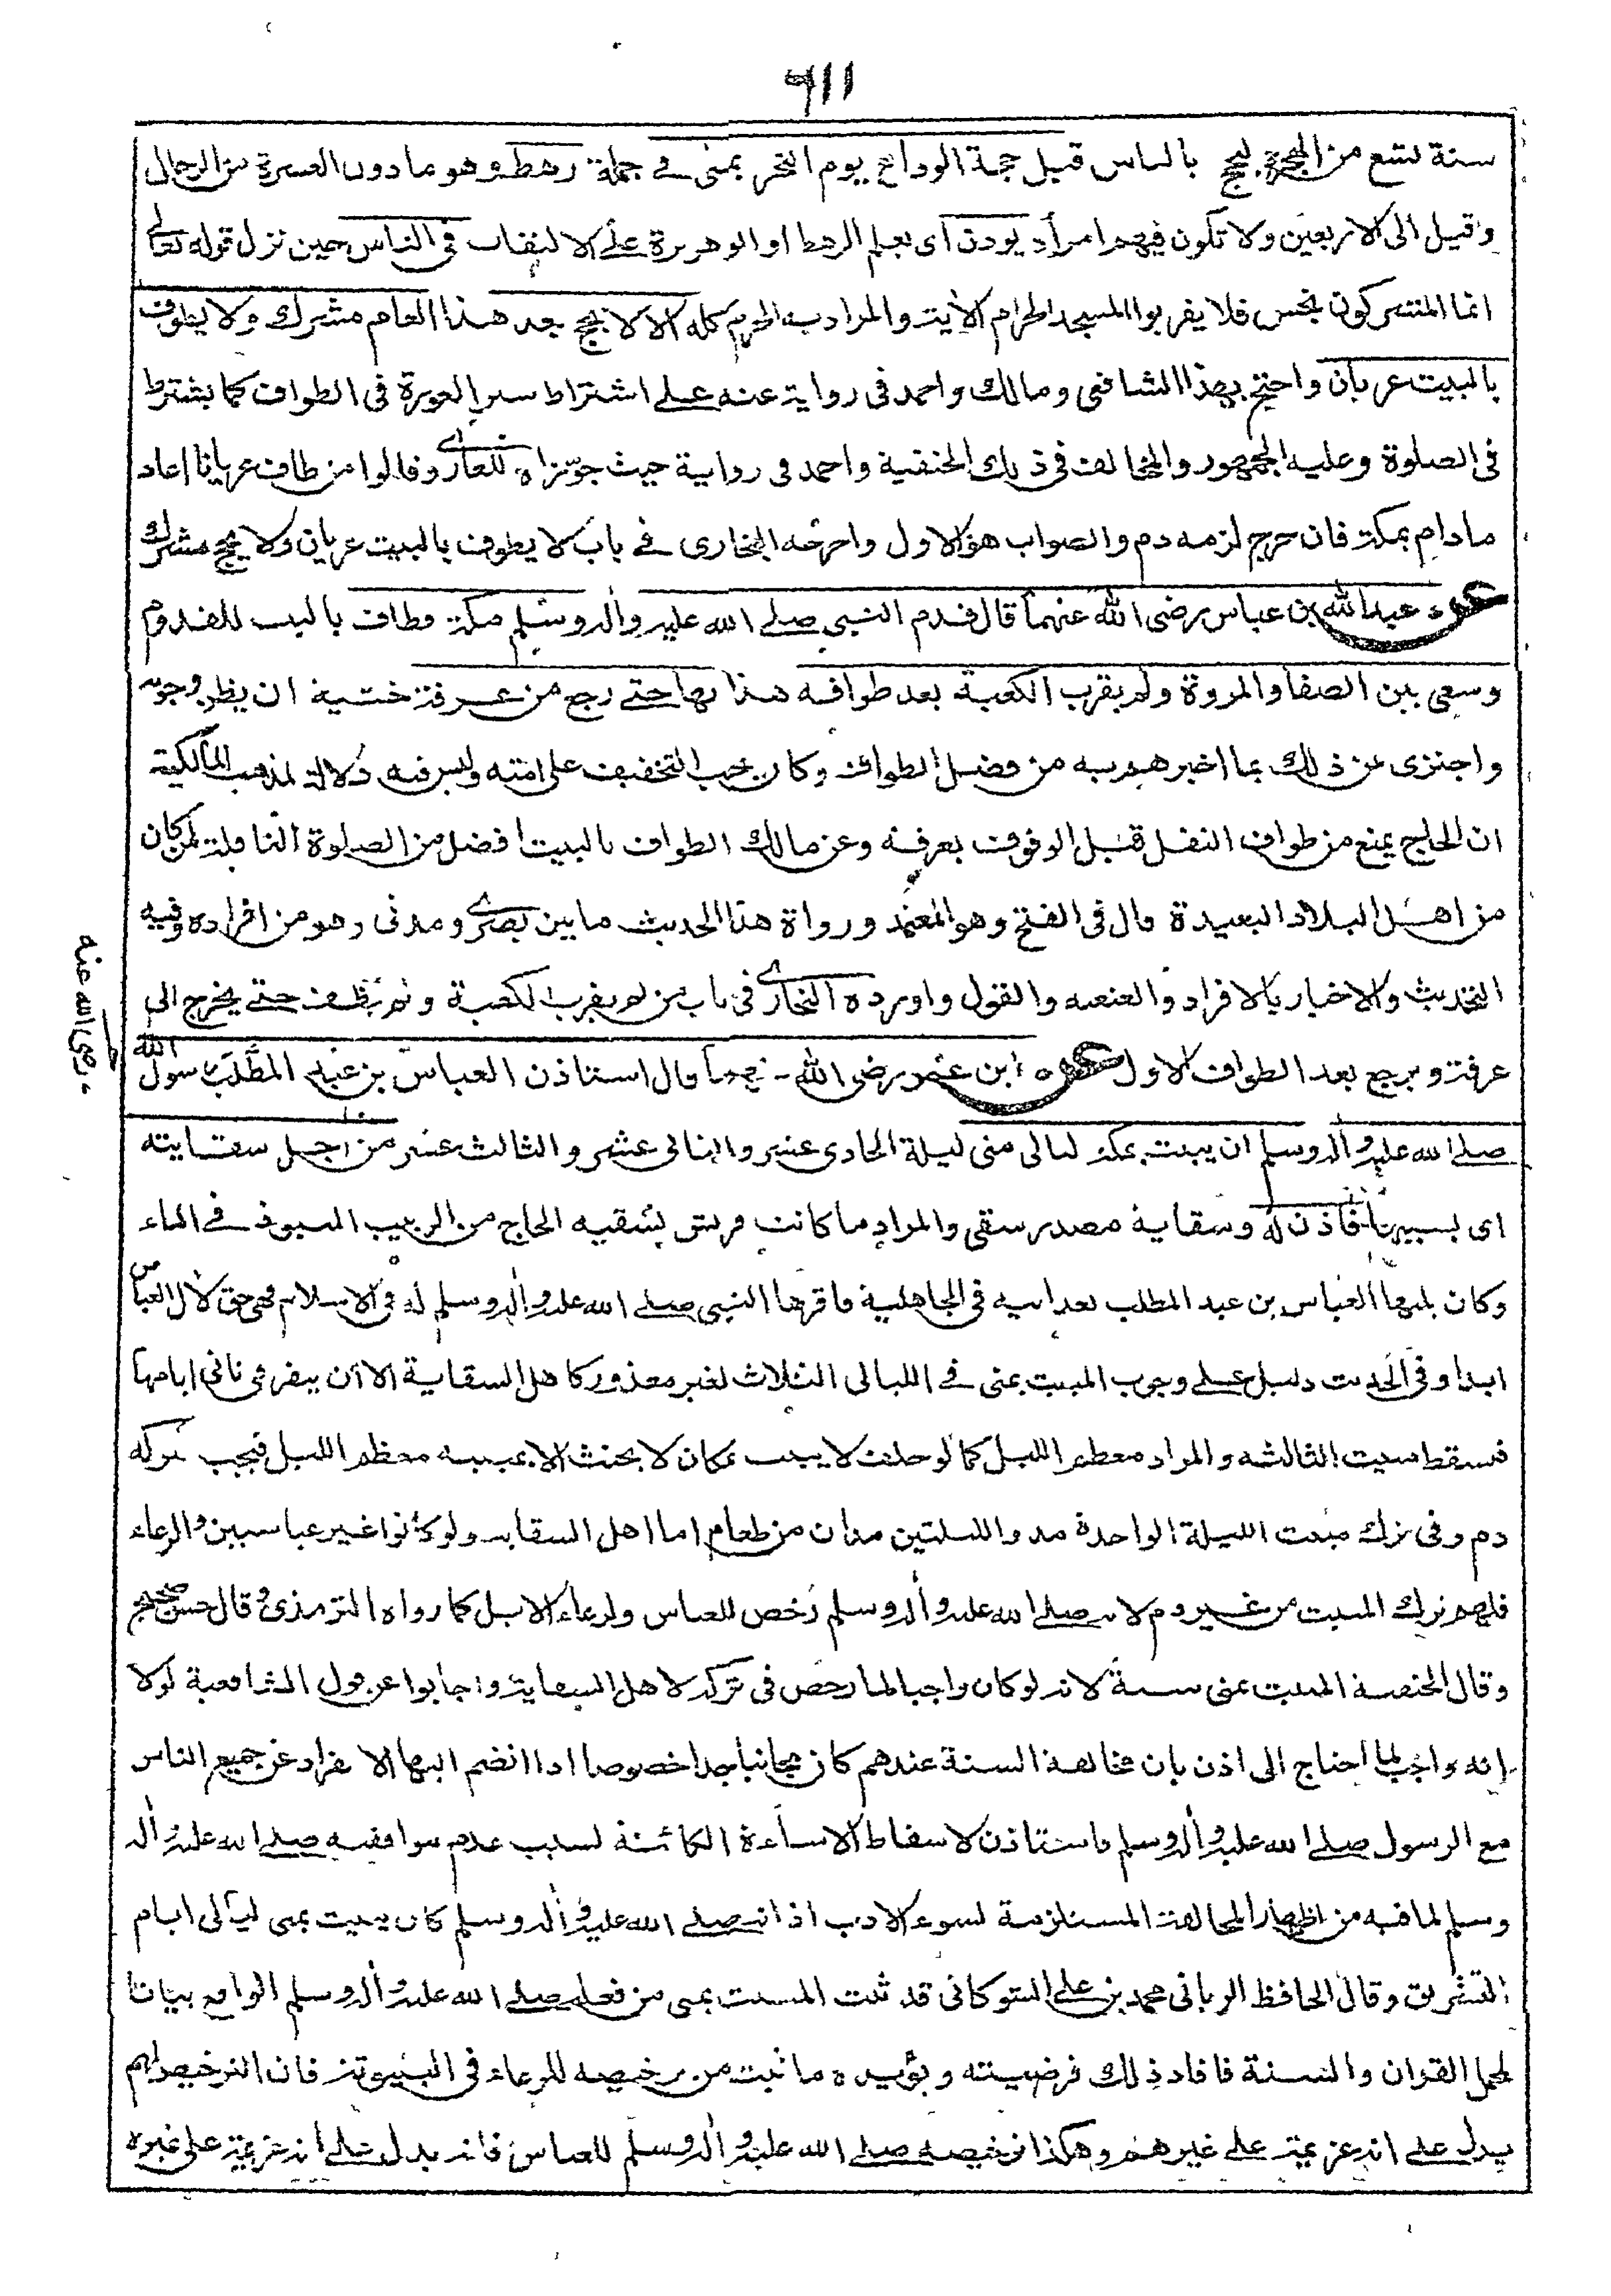 ٦١١
سنة تسع من الهجرة ليحج بالناس قبل حجة الوداع يوم النحر بمنى في جملة رهط وهو ما دون العشرة من الرجال
وقيل الى الاربعين ولا تكون فيهم امرأة يوذن اى يعلم الرهط او ابو هريرة على الالتفات في الناس حين نزل قوله تعالى
انما المشركون نجس فلا يقربوا المسجد الحرام الآية والمراد به الحرم كله الا لا يحج بعد هذا العام مشرك ولا يطوف
بالبيت عريان واحتج بهذا الشافعى ومالك واحمد في رواية عنه على اشتراط ستر العورة في الطواف كما يشترط
في الصلوة وعليه الجمهور والمخالف في ذلك الحنفية واحمد في رواية حيث جوّزاه للعارى وقالوا من طاف عريانا اعاد
ما دام بمكة فان خرج لزمه دم والصواب هو الاول واخرجه البخارى في باب لا يطوف بالبيت عريان ولا يحج مشرك
عن عبد الله بن عباس رضى الله عنهما قال قدم النبي صلى الله عليه وآله وسلم مكة وطاف بالبيت للقدوم
وسعى بين الصفا والمروة ولم يقرب الكعبة بعد طوافه هذا بها حتى رجع من عرفة خشية ان يظن وجوبه
واجتزى عن ذلك بما اخبرهم به من فضل الطواف وكان يحب التخفيف على امته وليس فيه دلالة لمذهب المالكية
ان الحاج يمنع من طواف النفل قبل الوقوف بعرفة وعن مالك الطواف بالبيت افضل من الصلوة النافلة لمن كان
من اهل البلاد البعيدة قال في الفتح وهو المعتمد ورواة هذا الحديث ما بين بصرى ومدنى وهو من افراده وفيه
التحديث والاخبار بالافراد والعنعنه والقول واورده البخارى في باب من لم يقرب الكعبة ولم يطف حتى يخرج الى
عرفة ويرجع بعد الطواف الاول عن ابن عمر رضى الله عنهما قال استاذن العباس بن عبد المطلب رسول الله
رضى الله عنه
صلى الله عليه وآله وسلم ان يبيت بمكة ليالى منى ليلة الحادى عشر والثانى عشر والثالث عشر من اجل سقايته
اى بسببها فاذن له وسقاية مصدر سقى والمراد ما كانت قريش تسقيه الحاج من الزبيب المنبوذ في الماء
وكان يليها العباس بن عبد المطلب بعد ابيه في الجاهلية فاقرها النبي صلى الله عليه وآله وسلم له في الاسلام فهى حق لآل العباس
ابدا وفي الحديث دليل على وجوب المبيت بمنى في الليالى الثلاث لغير معذور كاهل السقاية الا ان ينفر في ثانى ايامها
فيسقط مبيت الثالثة والمراد معظم الليل كما لو حلف لا يبيت بمكان لا يحنث الا بمبيته معظم الليل فيجب بتركه
دم وفى ترك مبيت الليلة الواحدة مد والليلتين مدان من طعام اما اهل السقاية ولو كانوا غير عباسيين والرعاء
فلهم ترك المبيت من غير دم لانه صلى الله عليه وآله وسلم رخص للعباس ولرعاء الابل كما رواه الترمذى وقال حسن صحيح
وقال الحنفية المبيت بمنى سنة لانه لو كان واجبا لما رخص في تركه لاهل السقاية واجابوا عن قول الشافعية لولا
انه واجب لما احتاج الى اذن بان مخالفة السنة عندهم كان مجانبا جدا خصوصا اذا انضم اليها الانفراد عن جميع الناس
مع الرسول صلى الله عليه وآله وسلم فاستاذن لاسقاط الاساءة الكائنة لسبب عدم موافقته صلى الله عليه وآله
وسلم لما فيه من اظهار المخالفة المستلزمة لسوء الادب اذ انه صلى الله عليه وآله وسلم كان يبيت بمنى ليالى ايام
التشريق وقال الحافظ الربانى محمد بن على الشوكانى قد ثبت المبيت بمنى من فعله صلى الله عليه وآله وسلم الواقع بيانا
لمجمل القران والسنة فافاد ذلك فرضيته ويؤيده ما ثبت من ترخيصه للرعاء في البيتوتة فان الترخيص لهم
يدل على انه عزيمة على غيرهم وهكذا ترخيصه صلى الله عليه وآله وسلم للعباس فانه يدل على انه عزيمة على غيره